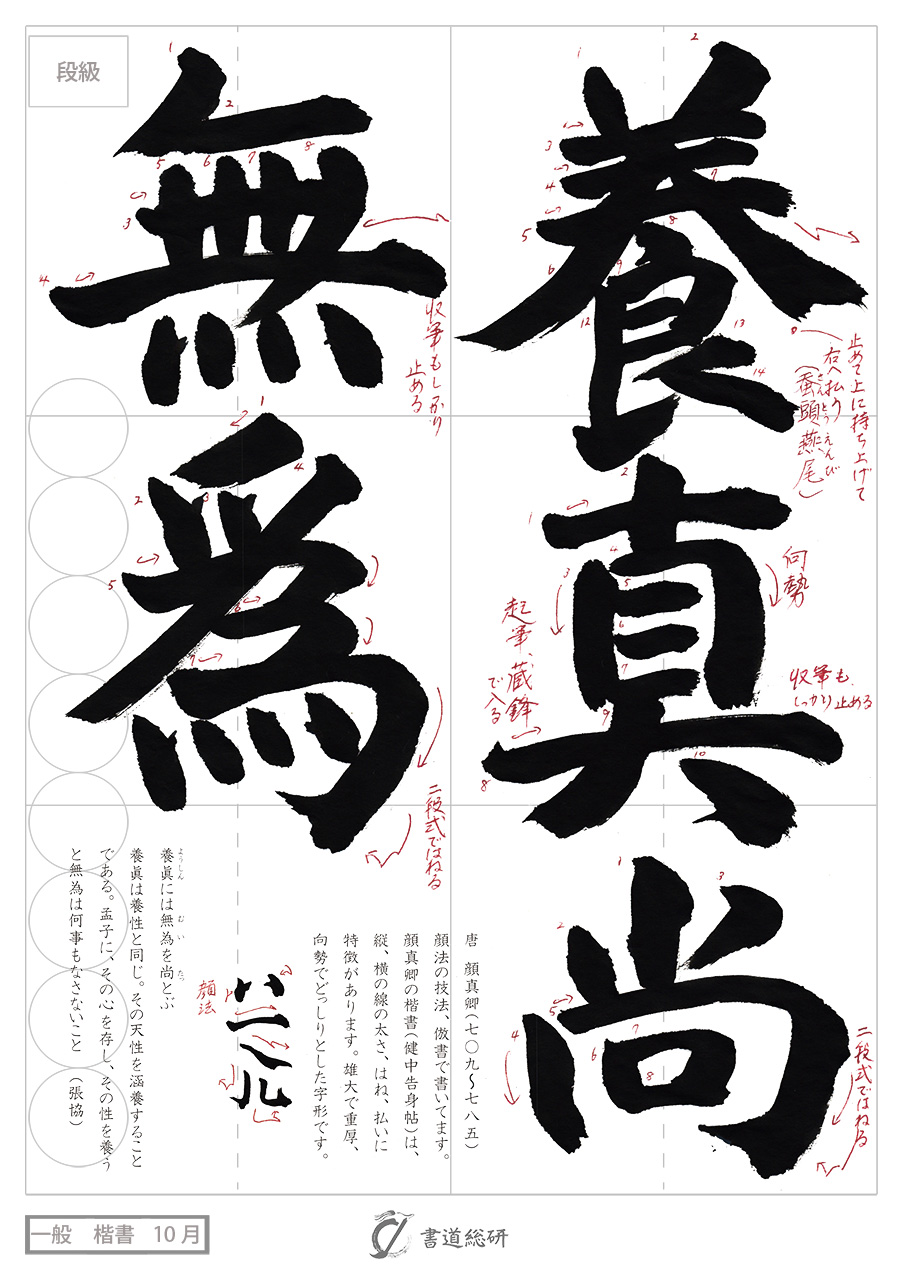 段級
養真尚
無為
止めて上に持ち上げて
右へ払う
(蚕頭燕尾)
さんとうえんび
向勢
起筆、蔵鋒
で入る
収筆も
しっかり止める
二段式ではねる
収筆もしっかり
止める
二段式ではねる
唐 顔真卿(七〇九〜七八五)
顔法の技法、倣書で書いてます。
顔真卿の楷書(健中告身帖)は、
縦、横の線の太さ、はね、払いに
特徴があります。雄大で重厚、
向勢でどっしりとした字形です。
顔法
養眞には無為を尚とぶ
ようしん むい たっ
養眞は養性と同じ。その天性を涵養すること
である。孟子に、その心を存し、その性を養う
と無為は何事もなさないこと (張協)
一般 楷書 10月
書道総研